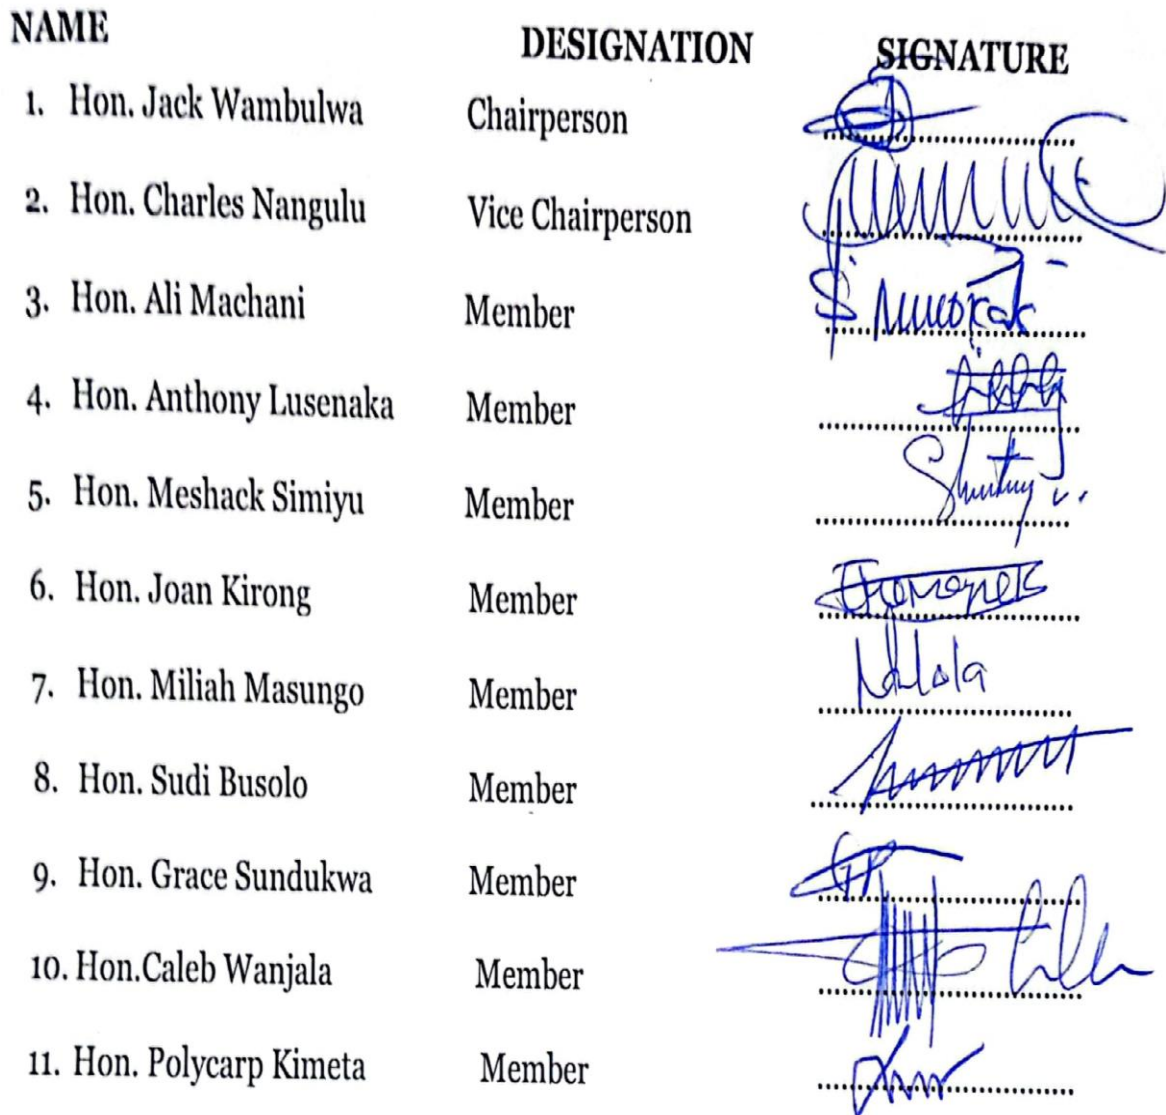 NAME DESIGNATION SIGNATURE
1. Hon. Jack Wambulwa Chairperson
2. Hon. Charles Nangulu Vice Chairperson
3. Hon. Ali Machani Member
4. Hon. Anthony Lusenaka Member
5. Hon. Meshack Simiyu Member
6. Hon. Joan Kirong Member
7. Hon. Miliah Masungo Member
8. Hon. Sudi Busolo Member
9. Hon. Grace Sundukwa Member
10. Hon.Caleb Wanjala Member
11. Hon. Polycarp Kimeta Member